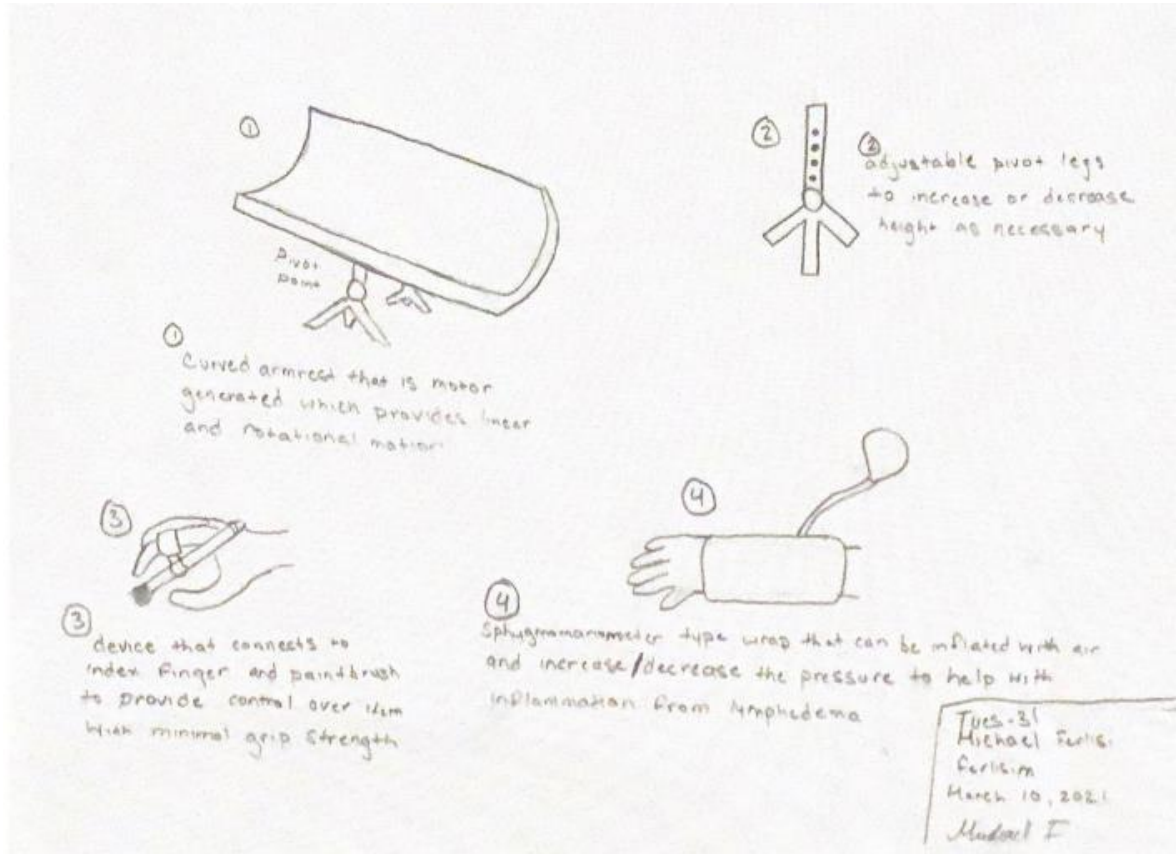 ①
Pivot
Point
①
Curved armrest that is motor
generated which provides linear
and rotational motion
②
②
adjustable pivot legs
to increase or decrease
height as necessary
③
③
device that connects to
index finger and paintbrush
to provide control over item
with minimal grip strength
④
④
Sphygmomanometer type wrap that can be inflated with air
and increase/decrease the pressure to help with
inflammation from lymphedema
Tues-31
Michael Ferlisi
ferlisim
March 10, 2021
Michael F